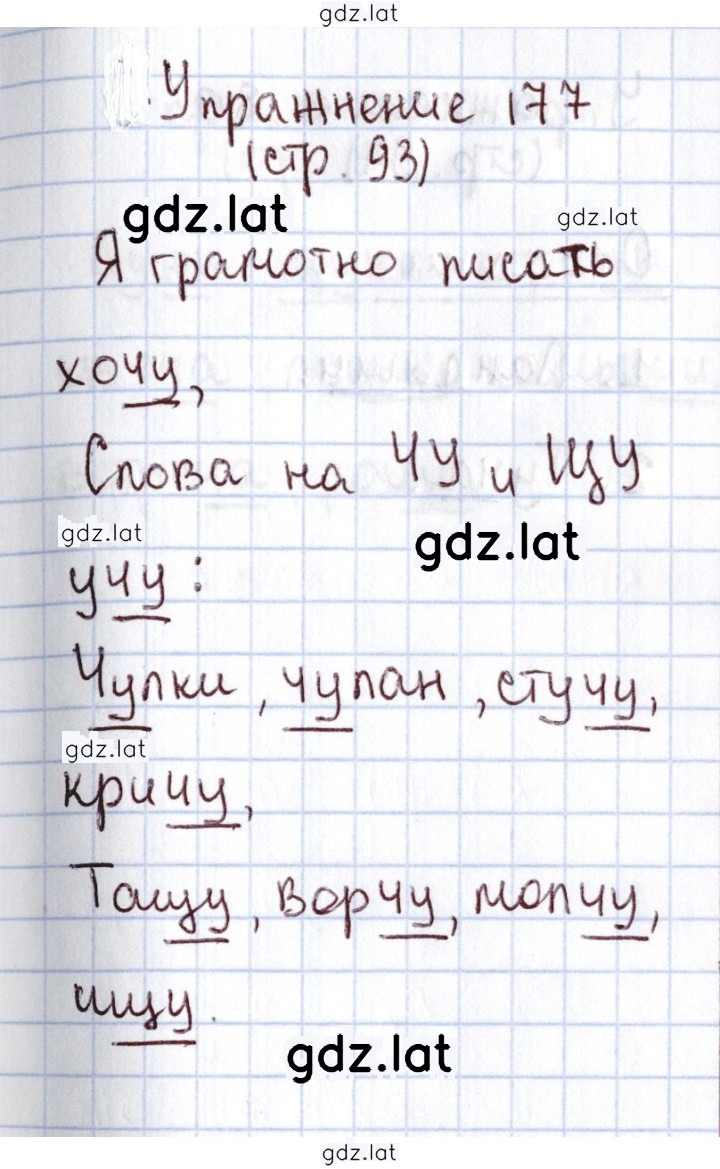 gdz.lat
Упражнение 177
(стр. 93)
gdz.lat gdz.lat
Я грамотно писать
хочу,
Слова на ЧУ и ЩУ
gdz.lat gdz.lat
учу:
Чулки, чулан, стучу,
gdz.lat
кричу,
Тащу, ворчу, молчу,
ищу.
gdz.lat
gdz.lat